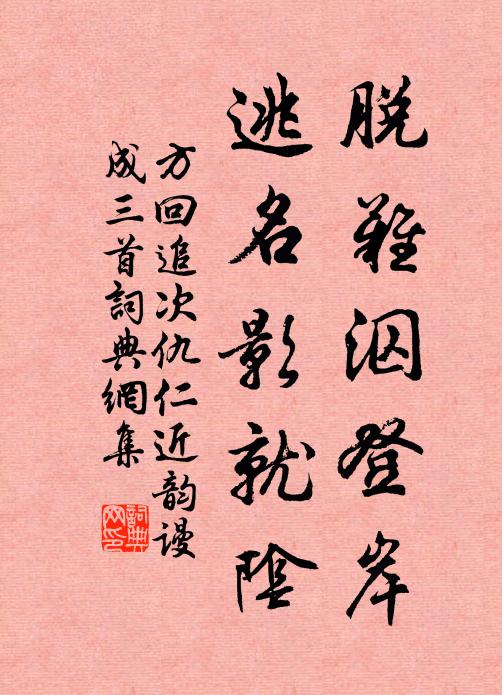 脱难泅登岸
逃名影就陰
方回追次仇仁近韵谩
成三首詞典網集
詞典
网印